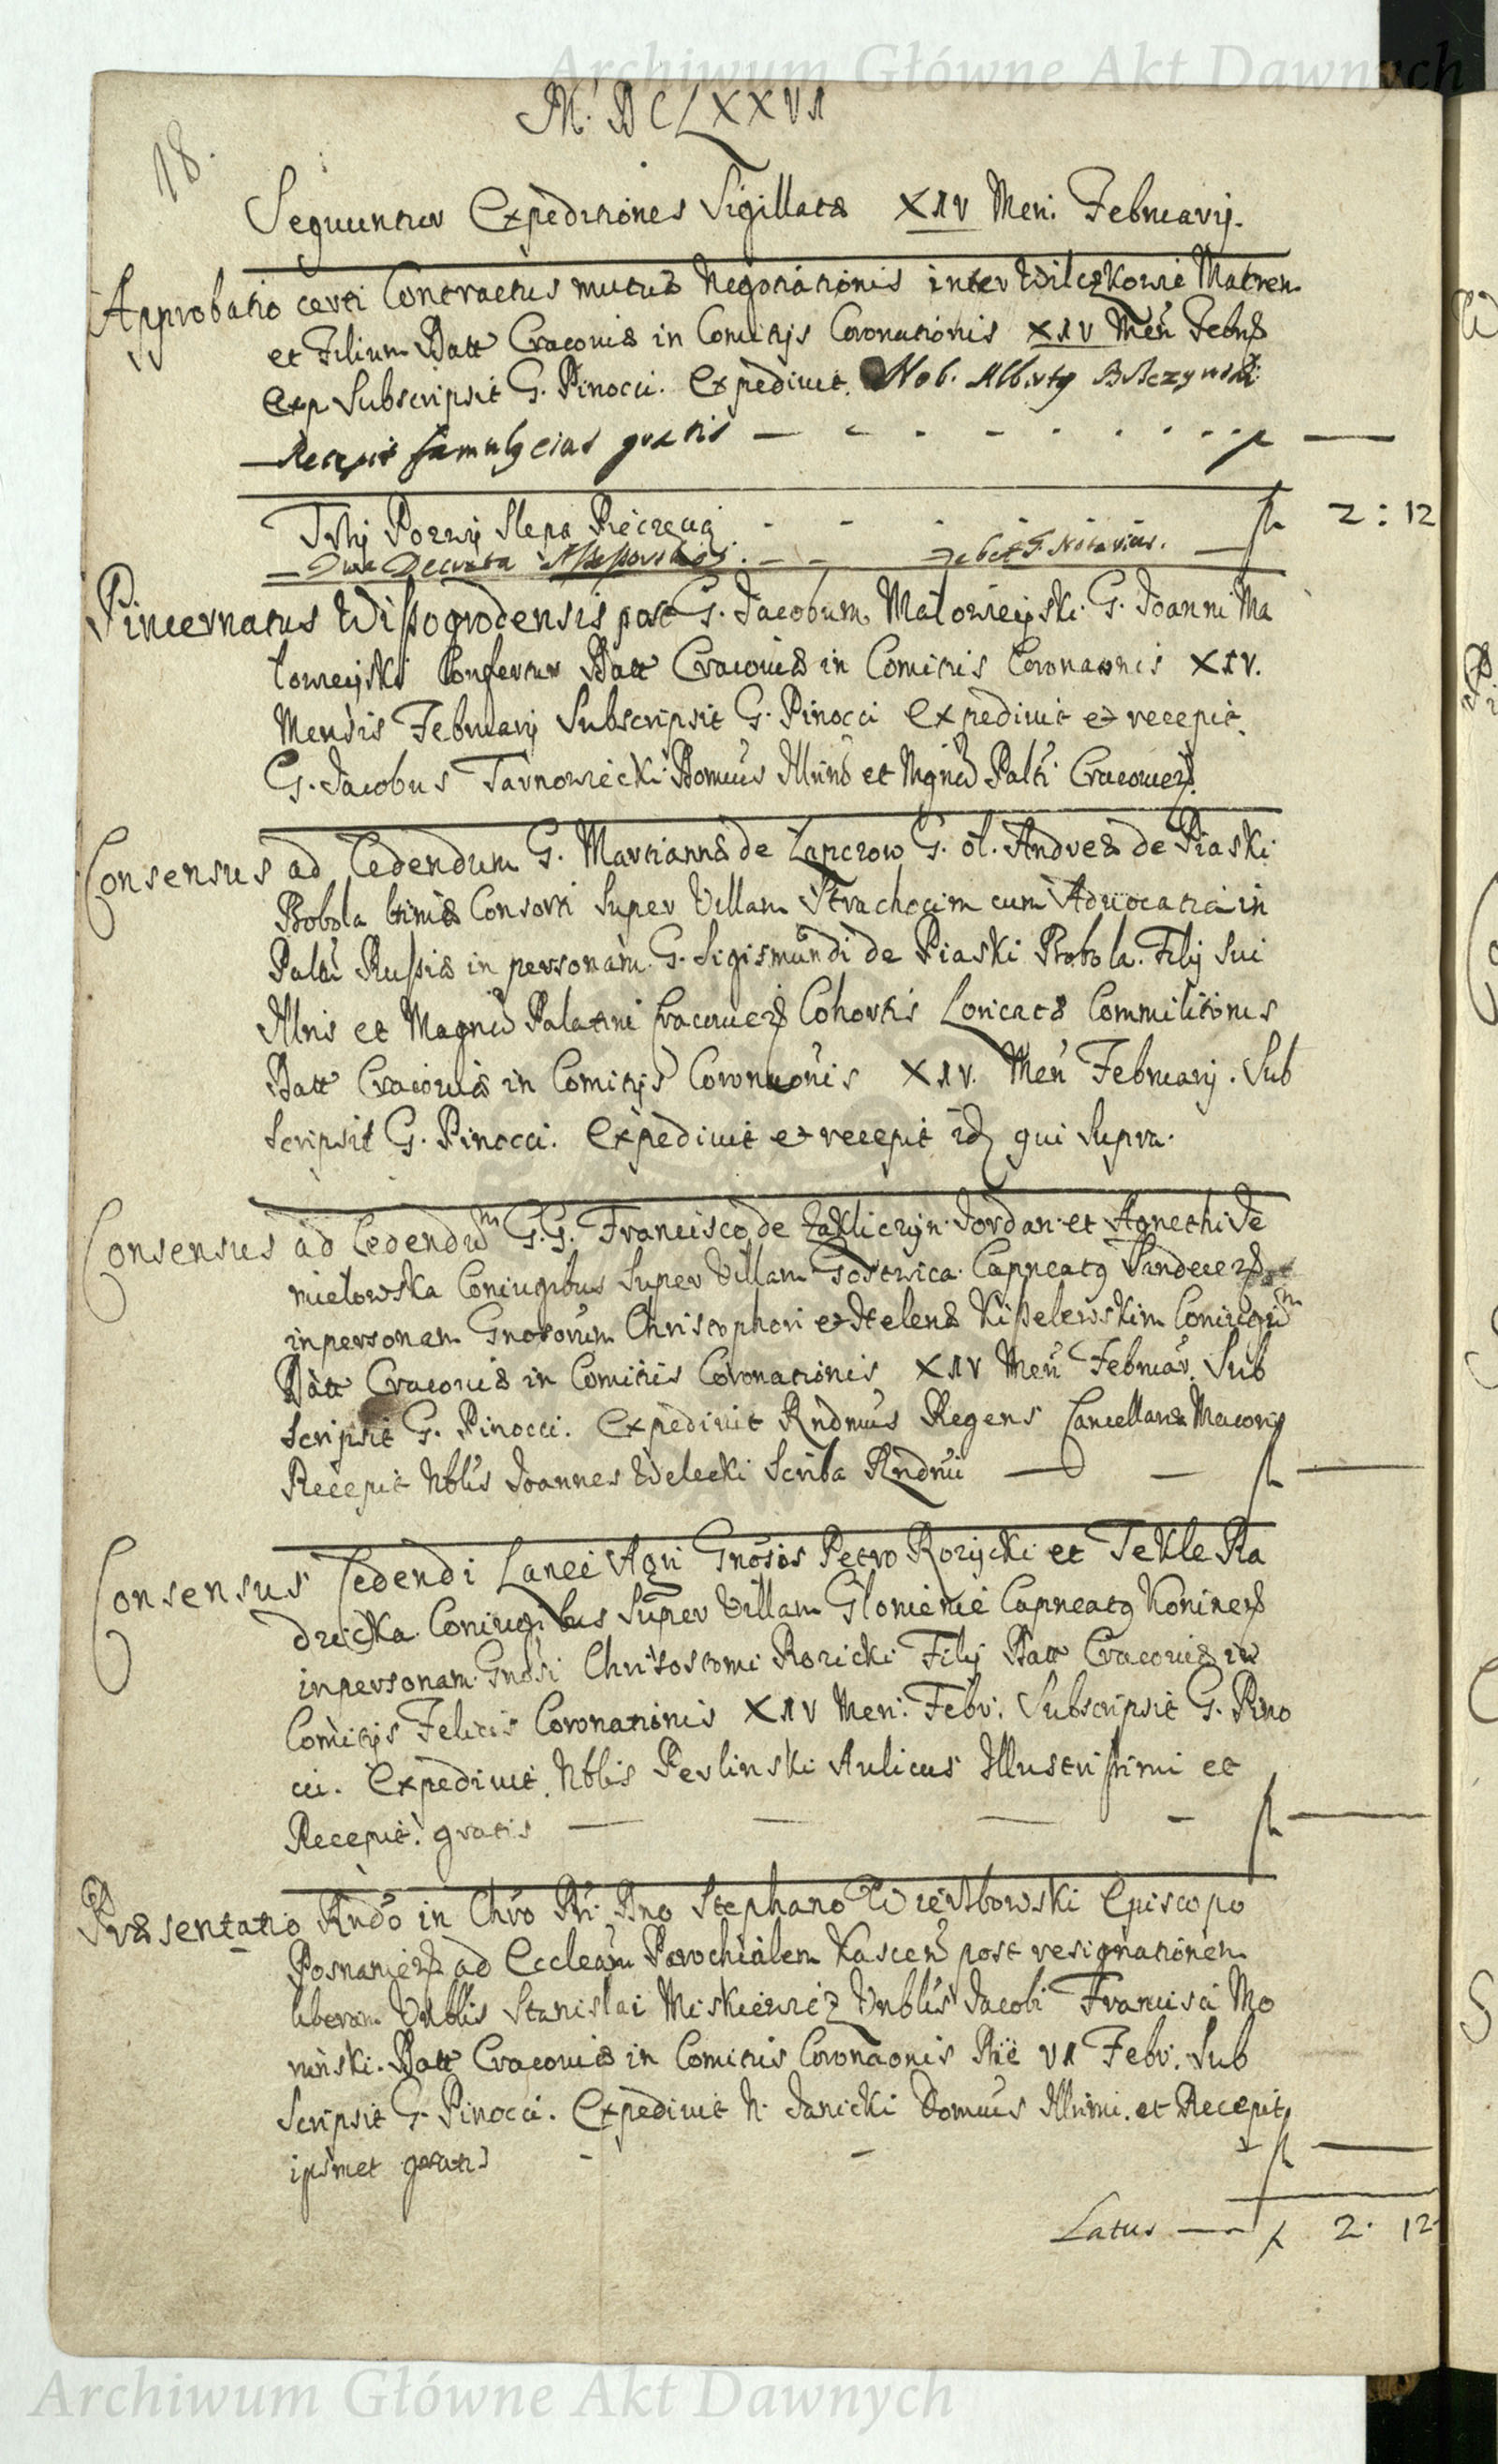 Archiwum Główne Akt Dawnych
M. DCLXXVI
18.
Sequuntur Expeditiones Sigillatæ XIV Men: Februarij.
Approbatio certi Contractus mutuæ Negotiationis inter Wilczkowie Matrem
et Filium Datt Cracoviæ in Comitijs Coronationis XIV Men
Exp Subscripsit G. Pinocci. Expedivit. Nob. Albertq
Recepit famulq eius gratis
Trzy Pozwy Slepa Pieczęcią fl 2 : 12
Dwa Decreta Assessorskie. debet G. Notarius. fl
Pincernatus Wissogrodensis post G. Jacobum Małowieyski G. Joanni Ma
łowieyski Confertur Datt Cracoviæ in Comitis Coronaonis XIV.
Mensis Februarij Subscripsit G. Pinocci Expedivit et recepit.
G. Jacobus Tarnowiecki Domus Illmi et Mgni Palti Cracovien.
Consensus ad Cedendum G. Martiannæ de Łapczow G. ol. Andreæ de Piaski
Bobola Consorti Super Villam Strachocim cum Advocatia in
Palti Russiæ in personam G. Sigismundi de Piaski Bobola. Filij Sui
Illris et Magni Palatini Cracovien Cohortis Loricatæ Commilitonis
Datt Cracoviæ in Comitijs Coronaonis XIV. Men Februarij. Sub
scripsit G. Pinocci. Expedivit et recepit id qui Supra.
Consensus ad Cedendum G.G. Francisco de Zakliczyn Jordan et Agnethi Sie
mielowska Coniugibus Super Villam Gostwica Capneatq Sandecen
in personam Gnosorum Christophori et Helenæ Kisselewskim Coniugum
Datt Cracoviæ in Comitiis Coronationis XIV Men Februar. Sub
scripsit G. Pinocci. Expedivit Rndmus Regens Cancellariæ Maioris
Recepit Nblis Joannes Welecki Scriba Rndmi fl
Consensus Cedendi Lanei Agri Gnosis Petro Rozycki et Tekle Ra
dzicka Coniugibus Super Villam Glonienie Capneatq Koninen
in personam Gnosi Chrisostomi Rozicki Filij Datt Cracoviæ in
Comitijs Felicis Coronationis XIV Men: Febr: Subscripsit G. Pino
cci. Expedivit Nblis Perlinski Aulicus Illustrissimi et
Recepit gratis fl
Præsentatio Rndo in Chro Pri Dno Stephano Wierzbowski Episcopo
Posnanien ad Eccleam Parochialem Kascen post resignationem
liberam Vnblis Stanislai Miskiewicz Vnblis Jacobi Francisci Mo
ninski. Datt Cracoviæ in Comitiis Coronaonis VI Febr. Sub
scripsit G. Pinocci. Expedivit N. Janicki Domus Illmi. et Recepit
ipsmet gratis fl
Latus fl 2. 12
Archiwum Główne Akt Dawnych